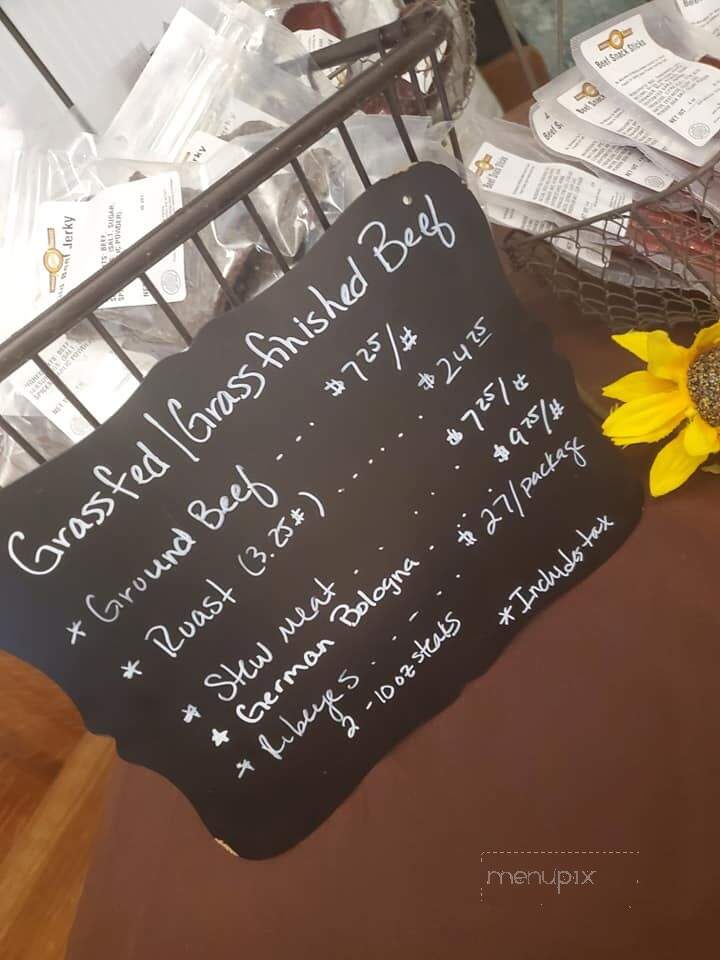 Grassfed/Grassfinished Beef
* Ground Beef ... $7.25/#
* Roast (3.25#) ...... $24.25
* Stew Meat ..... $7.25/#
* German Bologna .... $9.25/#
* Ribeyes ...... $27/package
2 - 10 oz steaks
*Includes tax
Beef Jerky
Beef Snack Sticks
menupix